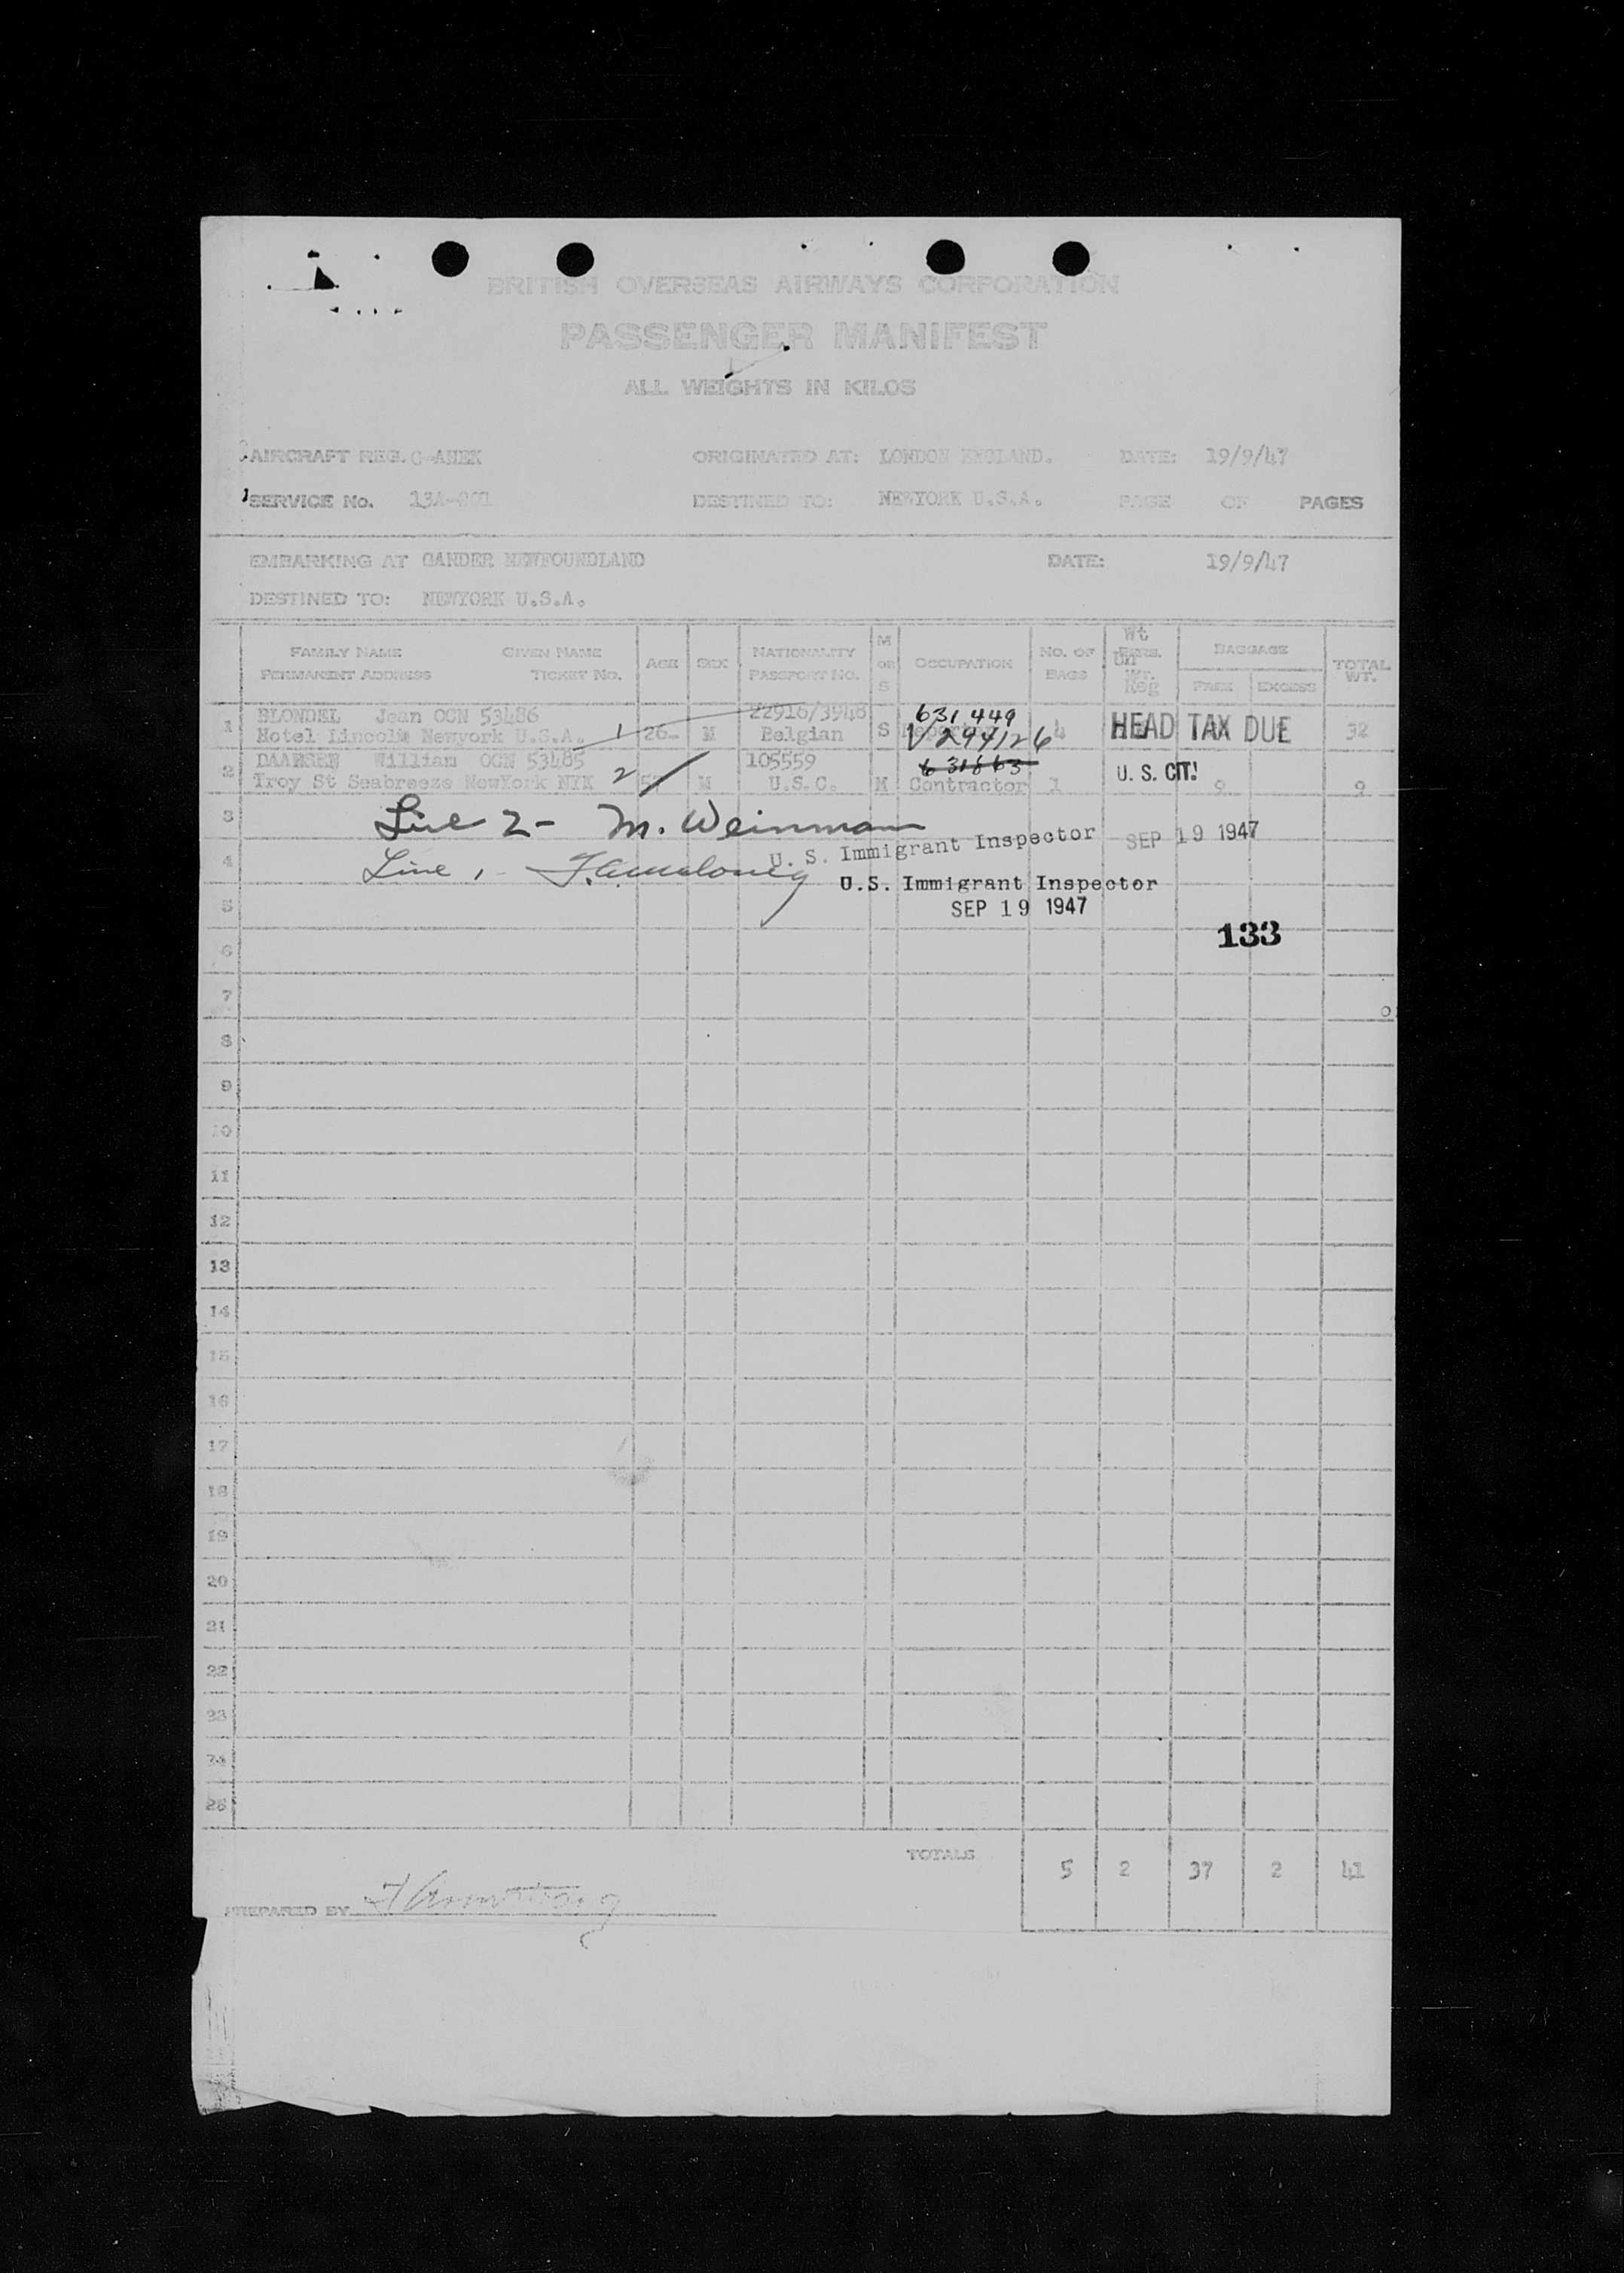 BRITISH OVERSEAS AIRWAYS CORPORATION
PASSENGER MANIFEST
ALL WEIGHTS IN KILOS
AIRCRAFT REG. G-AHEK ORIGINATED AT: LONDON ENGLAND. DATE: 19/9/47
SERVICE No. DESTINED TO: NEWYORK U.S.A. PAGE OF PAGES
EMBARKING AT GANDER NEWFOUNDLAND DATE: 19/9/47
DESTINED TO: NEWYORK U.S.A.
FAMILY NAME GIVEN NAME AGE SEX NATIONALITY M OR S OCCUPATION NO. OF BAGS Wt BAGGAGE TOTAL WT.
PERMANENT ADDRESS TICKET No. PASSPORT No. Wt. Reg FREE EXCESS
1 BLONDEL Jean OCN 53486 22916/3948 631449
Hotel Lincoln Newyork U.S.A. 1 26 M Belgian S V294126 4 HEAD TAX DUE 32
2 DAANSEN William OCN 53485 105559 631863
Troy St Seabreeze NewYork NYK 2 M U.S.C. M Contractor 1 U. S. CIT. 9 9
3 Line 2 - M. Weinman
U. S. Immigrant Inspector SEP 19 1947
4 Line 1 -
U.S. Immigrant Inspector
5 SEP 19 1947
133
6
7
8
9
10
11
12
13
14
15
16
17
18
19
20
21
22
23
24
25
TOTALS 5 2 37 2 41
PREPARED BY